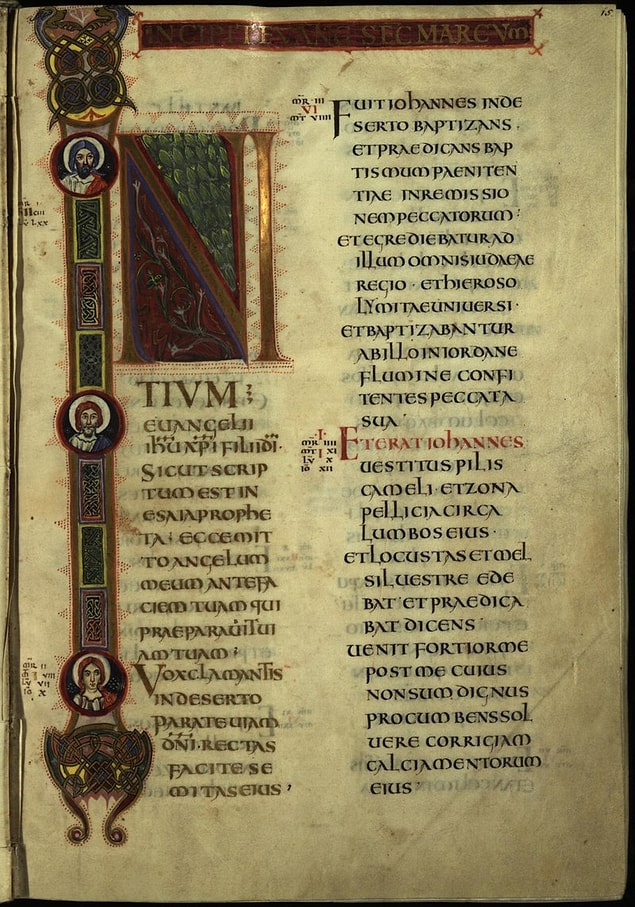 15
INCIPIT EVANG SEC MARCUM
INI
TIUM
EUANGELII
IHU XPI FILII DI·
SICUT SCRIP
TUM EST IN
ESAIA PROPHE
TA: ECCE MIT
TO ANGELUM
MEUM ANTE FA
CIEM TUAM QUI
PRAEPARAUIT UI
AM TUAM:
VOX CLAMANTIS
IN DESERTO
PARATE UIAM
DNI· RECTAS
FACITE SE
MITAS EIUS,
MR II
MT VIII
LU VII
IO X
MR III
VI
MT VIIII
FUIT IOHANNES IN DE
SERTO BAPTIZANS·
ET PRAEDICANS BAP
TISMUM PAENITEN
TIAE IN REMISSIO
NEM PECCATORUM:
ET EGREDIEBATUR AD
ILLUM OMNIS IUDAEAE
REGIO· ET HIEROSO
LYMITAE UNIUERSI·
ET BAPTIZABANTUR
AB ILLO IN IORDANE
FLUMINE CONFI
TENTES PECCATA
SUA·
·I·
MR IIII
MT I XI
LU X
IO XII
ET ERAT IOHANNES
UESTITUS PILIS
CAMELI· ET ZONA
PELLICIA CIRCA
LUMBOS EIUS·
ET LOCUSTAS ET MEL
SILUESTRE EDE
BAT· ET PRAEDICA
BAT DICENS·
UENIT FORTIOR ME
POST ME CUIUS
NON SUM DIGNUS
PROCUMBENS SOL
UERE CORRIGIAM
CALCIAMENTORUM
EIUS·